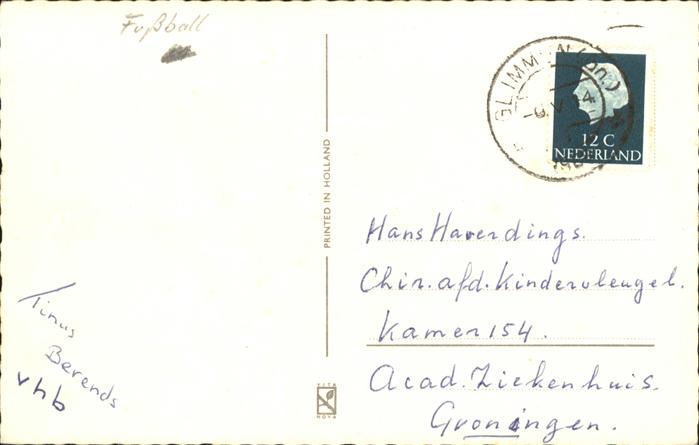 Fußball
GLIMMEN (Gn.)
12 C
NEDERLAND
PRINTED IN HOLLAND
Hans Haverdings.
Chir. afd. Kindervleugel.
Kamer 154.
Acad. Ziekenhuis.
Groningen.
Tinus
Berends
VITA
NOVA